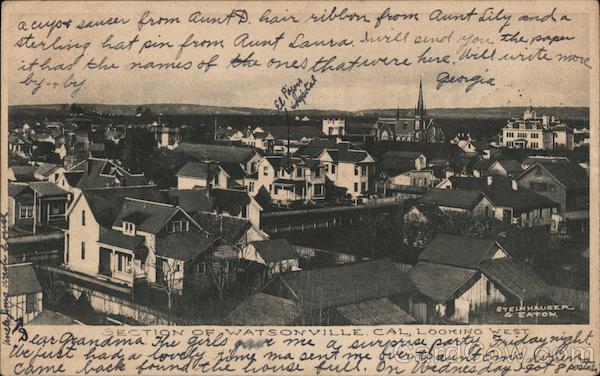 a cup & saucer from Aunt D. hair ribbon from Aunt Lily and a
sterling hat pin from Aunt Laura. I will send you the paper
it has the names of the ones that were here. Will write more
by-&-by
Georgia
El Pajaro
Hospital
Uncle
STEINHAUSER
& EATON.
SECTION OF WATSONVILLE, CAL., LOOKING WEST
Dear Grandma. The girls gave me a surprise party Friday night
We just had a lovely time ma sent me over to aunt and when I
came back found the house full. On Wednesday I got 8 postals
CardCow.com